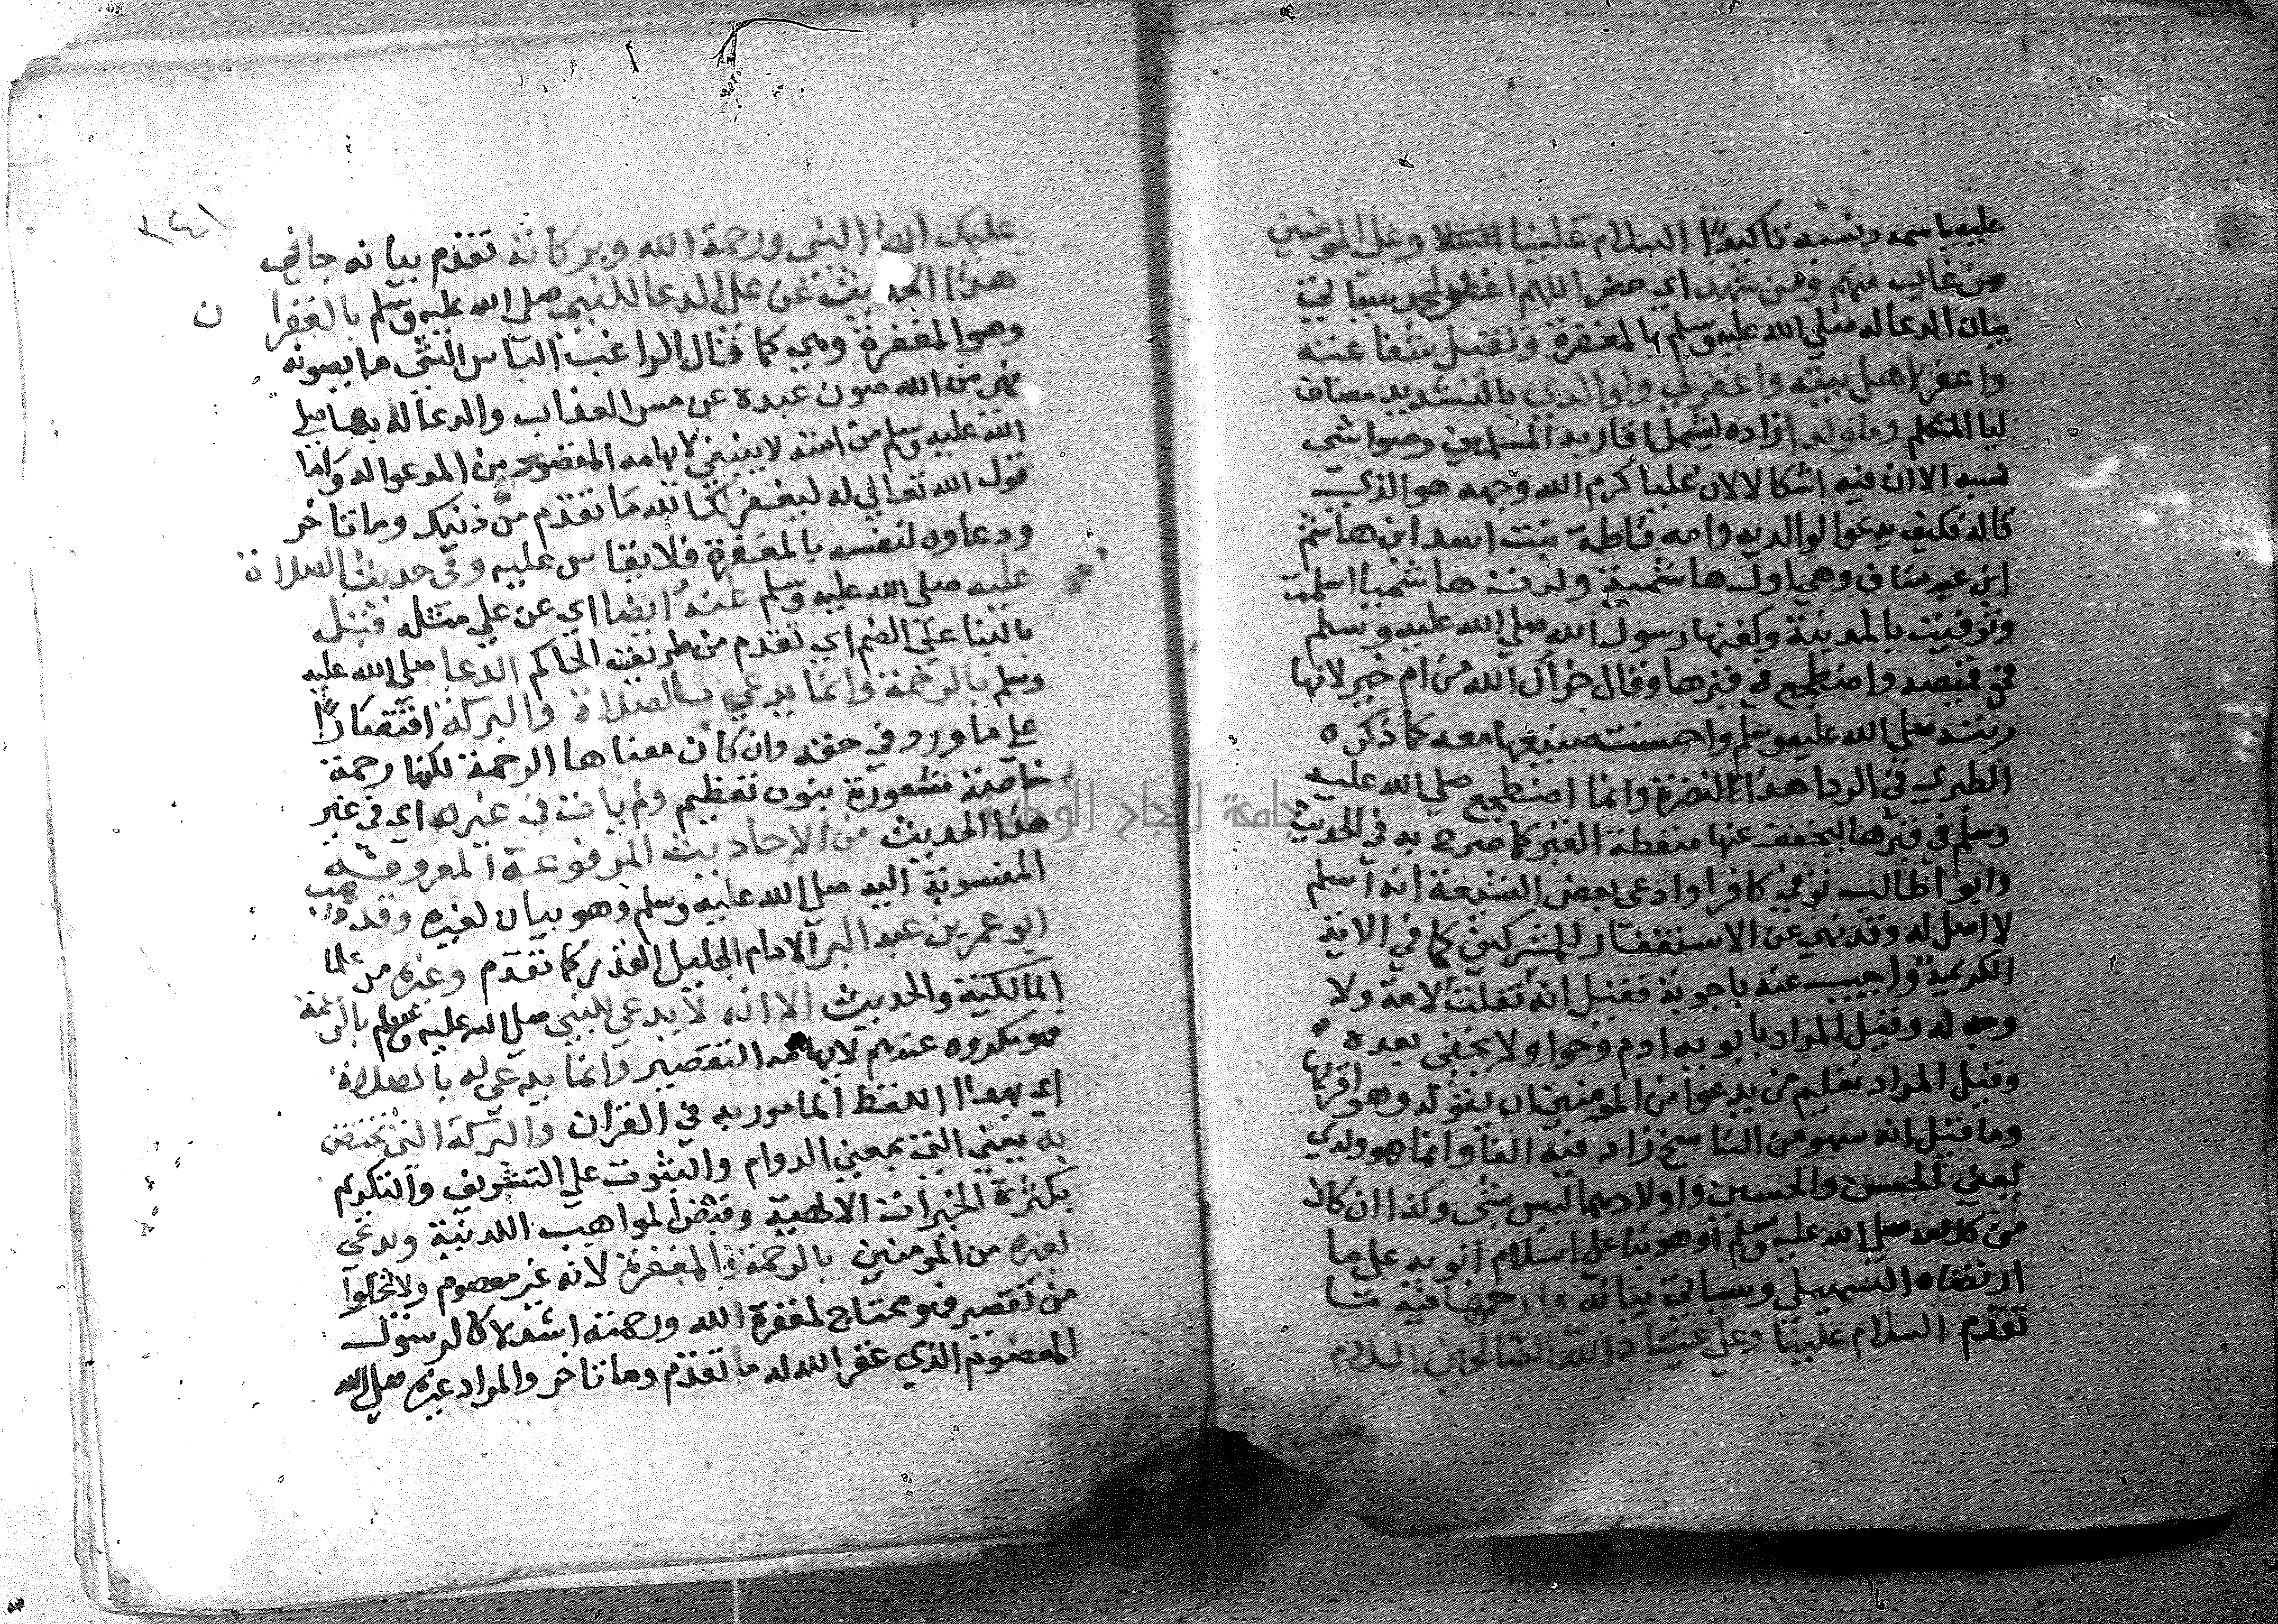 عليه باسمه ونسبه تاكيدًا السلام علينا وعلى المومنين
من غاب منهم ومن شهد اي حضر اللهم اغفر لمحمد بيان
بيان الدعا له صلي الله عليه وسلم بالمغفرة وتقبل شفاعته
واغفر لاهل بيته واغفرلي ولوالدي بالتشديد مضاف
ليا المتكلم وما ولد ازاده ليشمل اقاربه المسلمين وحواشي
نسبه الا ان فيه اشكالا لان عليا كرم الله وجهه هو الذي
قاله فكيف يدعوا لوالديه وامه فاطمة بنت اسد ابن هاشم
ابن عبد مناف وهي اول هاشمية ولدت هاشميا اسلمت
وتوفيت بالمدينة وكفنها رسول الله صلي الله عليه وسلم
في قميصه واضطجع في قبرها وقال جزاك الله من ام خير لانها
ربته صلي الله عليه وسلم واحسنت صنيعها معه كما ذكره
الطبري في الرياض النضرة وانما اضطجع صلي الله عليه
وسلم في قبرها ليخفف عنها ضغطة القبر كما صرح به في الحديث
وابوا طالب توفي كافرا وادعى بعض الشيعة انه اسلم
لا اصل له وقد نهي عن الاستغفار للمشركين كما في الاية
الكريمة واجيب عنه باجوبة فقيل انه تعليمًا لامة ولا
وجه له وقيل المراد بابويه ادم وحوا ولا يخفى بعده
وقيل المراد تعليم من يدعوا من المومنين ان يقوله وهو اقربها
وما قيل انه سهو من الناسخ زاد فيه الفا وانما هو ولدي
يعني الحسن والحسين واولادهما ليس بشي وكذا ان كان
من كلامه صلي الله عليه وسلم او هو بنا علي اسلام ابويه علي ما
ارتضاه السهيلي وسياتي بيانه وارحمهما فيه ما
تقدم السلام علينا وعلي عباد الله الصالحين السلام
عليك
٣٤١
عليك ايها النبي ورحمة الله وبركاته تقدم بيانه جا في
هذا الحديث عن علي الدعا للنبي صلي الله عليه وسلم بالغفران
وهو المغفرة وهي كما قال الراغب الباس الشي ما يصونه
فهي من الله صون عبده عن مس العذاب والدعا له بها صلي
الله عليه وسلم من امته لا ينبغي لايهامه القصور من المدعوا له واما
قول الله تعالي له ليغفر لك الله ما تقدم من ذنبك وما تاخر
ودعاوه لنفسه بالمغفرة فلا يقاس عليه وفي حديث الصلاة
عليه صلي الله عليه وسلم عنه ايضا اي عن علي مثله قبل
بالبنا علي الضم اي تقدم من طريق الحاكم الدعا صلي الله عليه
وسلم بالرحمة وانما يدعي بالصلاة والبركة اقتصارًا
علي ما ورد في حقه وان كان معناها الرحمة لكنها رحمة
خاصة مشعورة بنون تعظيم ولم يات في غيره اي في غير
هذا الحديث من الاحاديث المرفوعة المعروفة
المنسوبة اليه صلي الله عليه وسلم وهو بيان لغيره وقد ذهب
ابو عمر بن عبد البر الامام الجليل القدر كما تقدم وغيره من علما
المالكية والحديث الا انه لا يدعي للنبي صلي الله عليه وسلم بالرحمة
فهو مكروه عندهم لايهامه التقصير وانما يدعي له بالصلاة
اي بهذا اللفظ المامور به في القران والبركة التي تختص
به يعني التي بمعني الدوام والثبوت علي التشريف والتكريم
بكثرة الخيرات الالهية وفيض المواهب اللدنية ويدعي
لغيره من المومنين بالرحمة والمغفرة لانه غير معصوم ولا يخلوا
من تقصير فهو محتاج لمغفرة الله ورحمته اشد لا كالرسول
المعصوم الذي غفر الله له ما تقدم وما تاخر والمراد غيره صلي الله
جامعة النجاح الوطنية